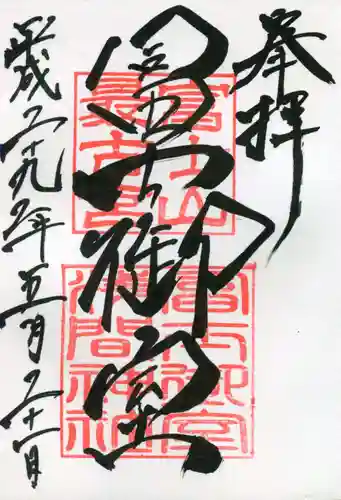 奉拝
冨士御室
平成二十九年五月二十一日
富士山
最古宮
冨士御室
浅間神社